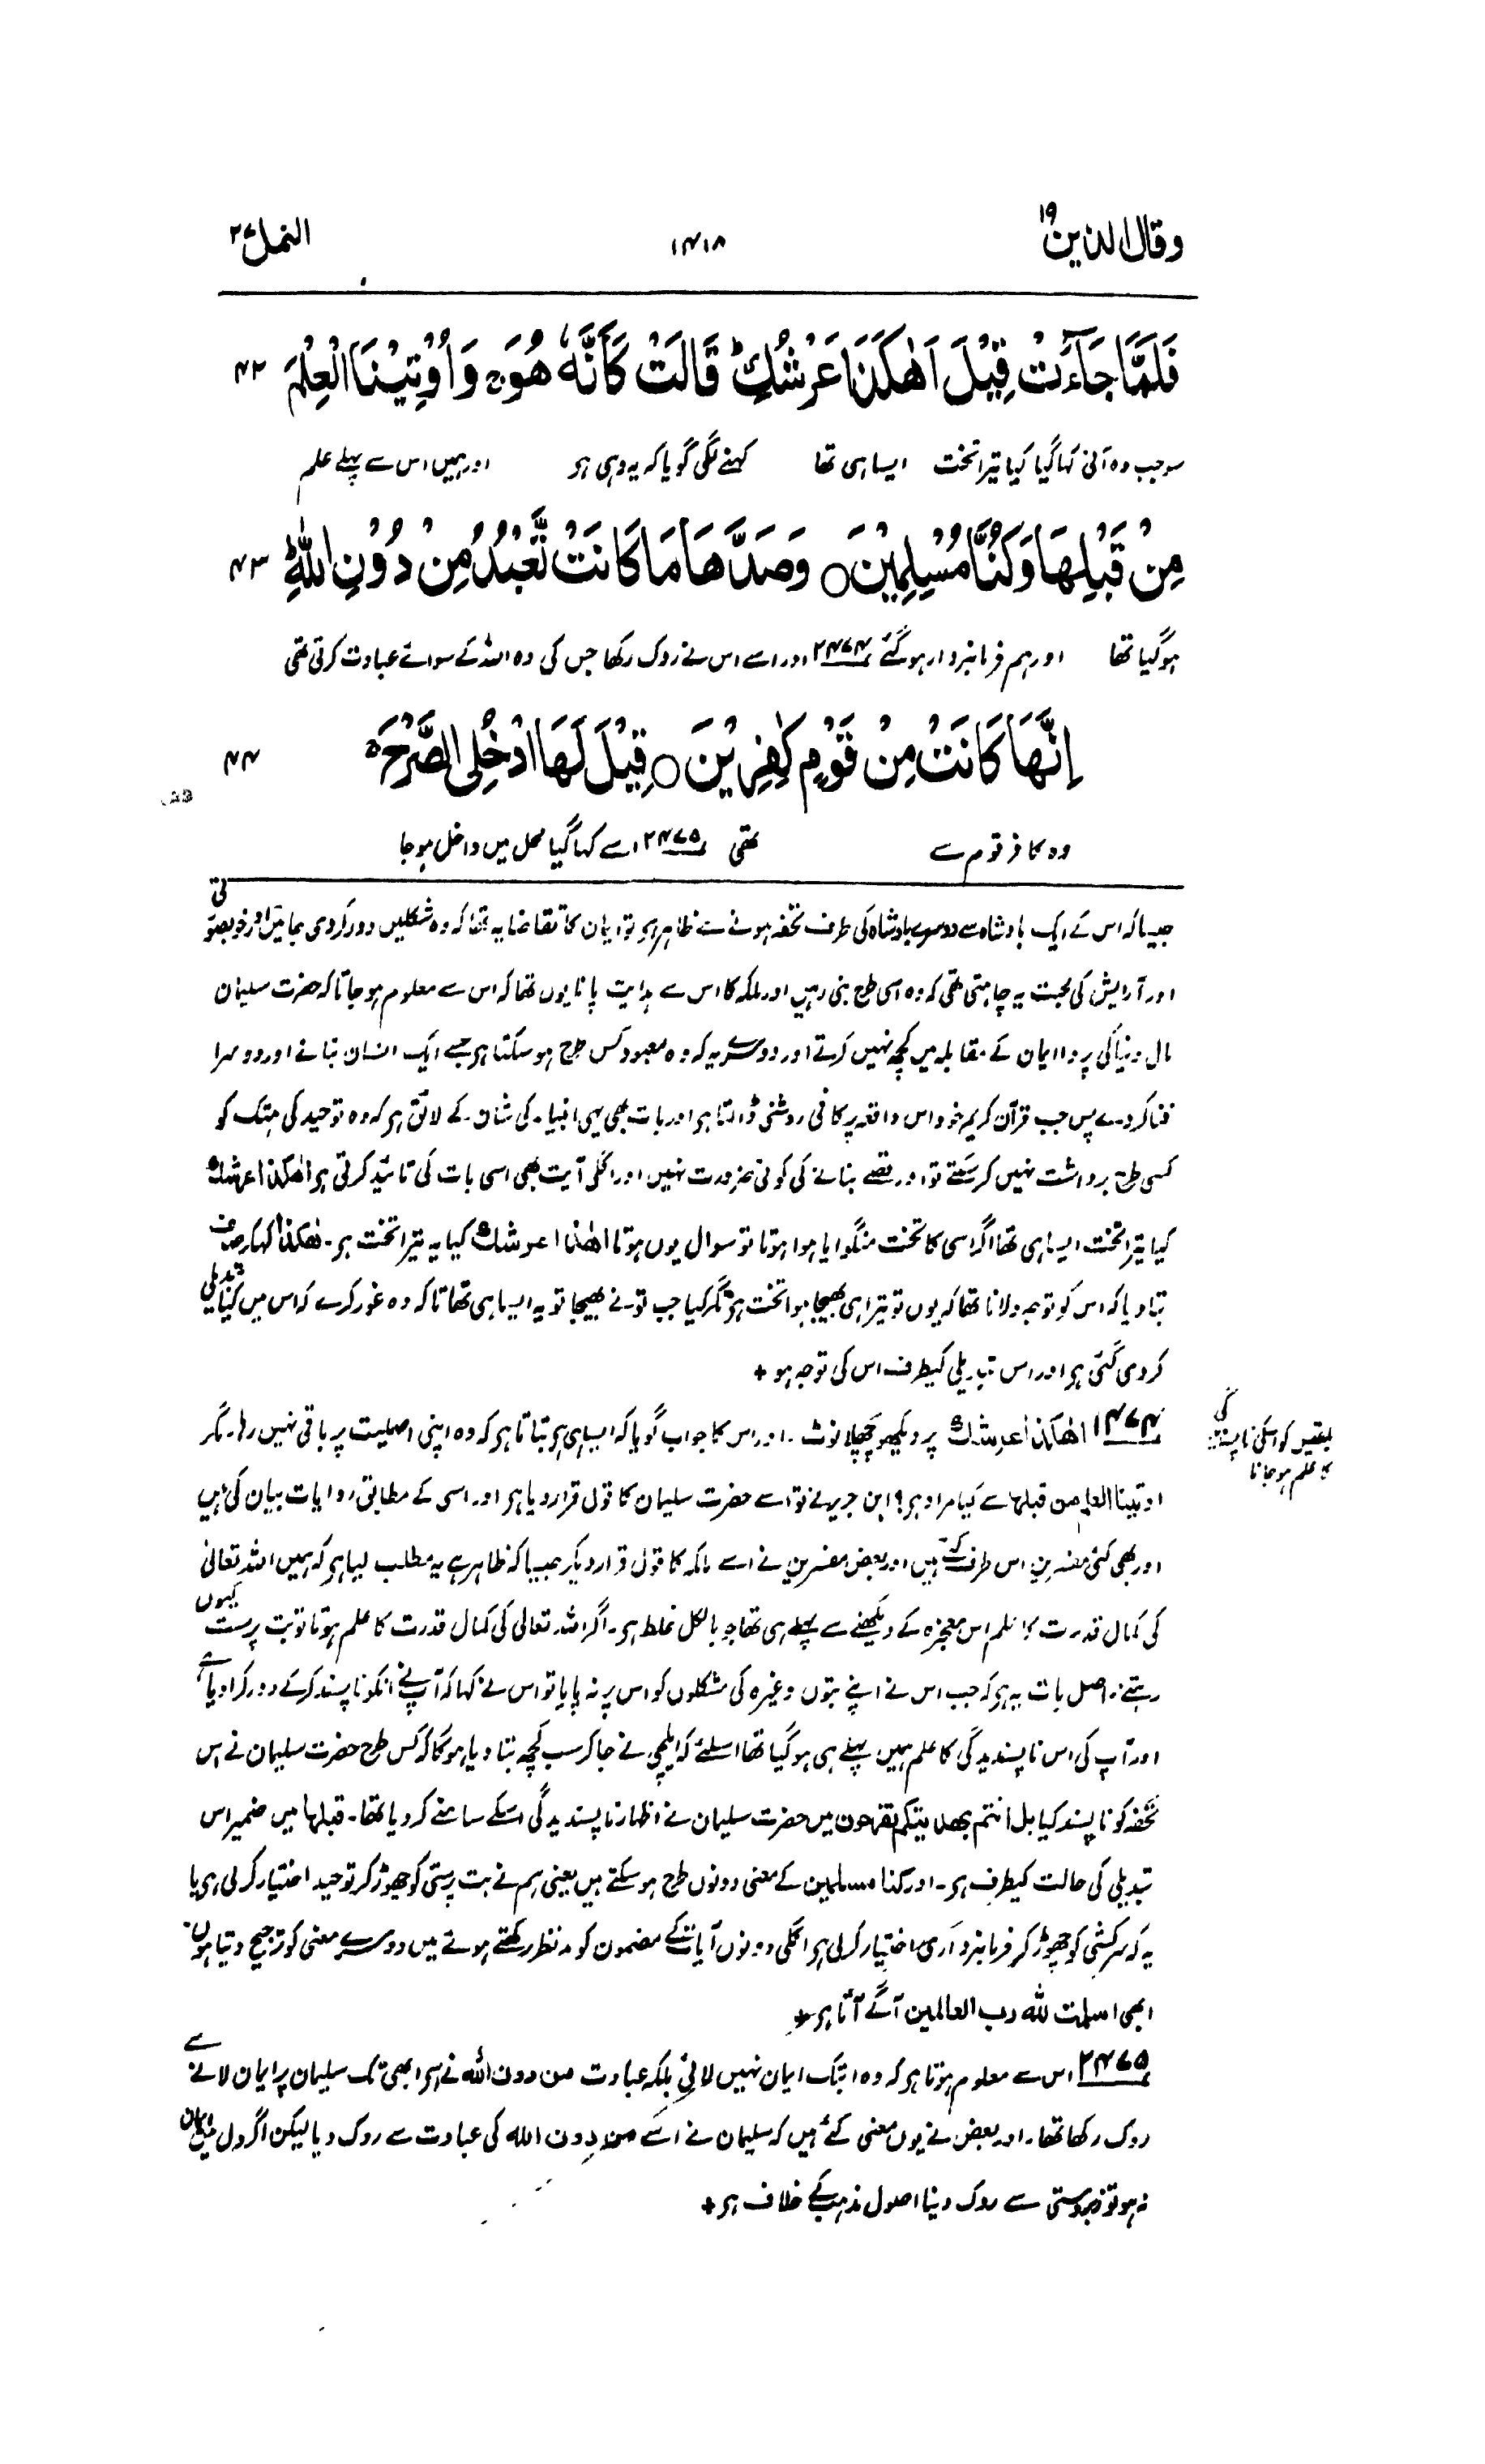 وقال الذین ۱۹
۱۴۱۸
النمل ۲۷
فَلَمَّا جَآءَتْ قِیْلَ اَهٰكَذَا عَرْشُكِ ؕ قَالَتْ كَاَنَّهٗ هُوَ ۚ وَ اُوْتِیْنَا الْعِلْمَ ۴۲
سو جب وہ آئی کہا گیا کیا تیرا تخت ایسا ہی تھا کہنے لگی گویا کہ یہ وہی ہر اور ہمیں اس سے پہلے علم
مِنْ قَبْلِهَا وَ كُنَّا مُسْلِمِیْنَ ○ وَ صَدَّهَا مَا كَانَتْ تَّعْبُدُ مِنْ دُوْنِ اللّٰهِ ؕ ۴۳
ہو گیا تھا اور ہم فرمانبردار ہو گئے ۲۴۷۴ اور اسے اس نے روک رکھا جس کی وہ اللہ کے سوائے عبادت کرتی تھی
اِنَّهَا كَانَتْ مِنْ قَوْمٍ كٰفِرِیْنَ ○ قِیْلَ لَهَا ادْخُلِی الصَّرْحَ ۚ ۴۴
وہ کافر قوم سے تھی ۲۴۷۵ اسے کہا گیا محل میں داخل ہو جا
جیسا کہ اس کے ایک بادشاہ سے دوسرے بادشاہ کی طرف تحفہ ہونے سے ظاہر ہر تو ایمان کا تقاضا یہ تھا کہ وہ شکلیں دور کر دی جائیں اور خوبصورتی
اور آرایش کی محبت یہ چاہتی تھی کہ وہ اسی طرح بنی رہیں اور ملکہ کا اس سے ہدایت پانا یوں تھا کہ اس سے معلوم ہو جاتا کہ حضرت سلیمان
مال دنیا کی پروا ایمان کے مقابلہ میں کچھ نہیں کرتے اور دوسرے یہ کہ وہ معبود کس طرح ہو سکتا ہر جسے ایک انسان بنائے اور دوسرا
فنا کر دے پس جب قرآن کریم خود اس واقعہ پر کافی روشنی ڈالتا ہر اور بات بھی یہی انبیاء کی شان کے لائق ہر کہ وہ توحید کی ہتک کو
کسی طرح برداشت نہیں کر سکتے تو اور قصے بنانے کی کوئی ضرورت نہیں اور اگلی آیت بھی اسی بات کی تائید کرتی ہر اهكذا عرشك
کیا تیرا تخت ایسا ہی تھا اگر اسی کا تخت منگوایا ہوا ہوتا تو سوال یوں ہوتا اهذا عرشك کیا یہ تیرا تخت ہر۔ هكذا کہہ کر صاف
بتا دیا کہ اس کو توجہ دلانا تھا کہ یوں تو تیرا ہی بھیجا ہوا تخت ہر مگر کیا جب تو نے بھیجا تو یہ ایسا ہی تھا تا کہ وہ غور کرے کہ اس میں کیا تبدیلی
کر دی گئی ہر اور اس تبدیلی کیطرف اس کی توجہ ہو +
بلقیس کو اسکی ناپسندیدگی
کا علم ہو جانا
۱۴۷۴ اهكذا عرشك پر دیکھو پچھلا نوٹ۔ اور اس کا جواب گویا کہ ایسا ہی ہر بتاتا ہر کہ وہ اپنی اصلیت پر باقی نہیں رہا۔ مگر
اوتینا العلم من قبلها سے کیا مراد ہر؟ ابن جریر نے تو اسے حضرت سلیمان کا قول قرار دیا ہر اور اسی کے مطابق روایات بیان کی ہیں
اور بھی کئی مفسرین اس طرف گئے ہیں اور بعض مفسرین نے اسے ملکہ کا قول قرار دیکر جیسا کہ ظاہر ہے یہ مطلب لیا ہر کہ ہمیں اللہ تعالیٰ
کی کمال قدرت کا علم اس معجزہ کے دیکھنے سے پہلے ہی تھا جو بالکل غلط ہر۔ اگر اللہ تعالیٰ کی کمال قدرت کا علم ہوتا تو بت پرست کیوں
رہتے۔ اصل بات یہ ہر کہ جب اس نے اپنے بتوں وغیرہ کی شکلوں کو اس پر نہ پایا تو اس نے کہا کہ آپ نے انکو ناپسند کر کے دور کرا دیا ہے
اور آپ کی اس ناپسندیدگی کا علم ہمیں پہلے ہی ہو گیا تھا اسلئے کہ ایلچی نے جا کر سب کچھ بتا دیا ہوگا کہ کس طرح حضرت سلیمان نے اس
تحفہ کو ناپسند کیا بل انتم بهدیتكم تفرحون میں حضرت سلیمان نے اظہار ناپسندیدگی اسکے سامنے کر دیا تھا۔ قبلها میں ضمیر اس
تبدیلی کی حالت کیطرف ہر۔ اور كنا مسلمین کے معنی دونوں طرح ہو سکتے ہیں یعنی ہم نے بت پرستی کو چھوڑ کر توحید اختیار کر لی ہر یا
یہ کہ سرکشی کو چھوڑ کر فرمانبرداری اختیار کر لی ہر اگلی دونوں آیات کے مضمون کو مد نظر رکھتے ہوئے میں دوسرے معنی کو ترجیح دیتا ہوں۔
ابھی اسلمت لله رب العالمین آگے آتا ہر +
۲۴۷۵ اس سے معلوم ہوتا ہر کہ وہ ابتک ایمان نہیں لائی بلکہ عبادت من دون الله نے اسے ابھی تک سلیمان پر ایمان لانے سے
روک رکھا تھا۔ اور بعض نے یوں معنی کئے ہیں کہ سلیمان نے اسے من دون الله کی عبادت سے روک دیا لیکن اگر دل میں ایمان
نہ ہو تو زبردستی سے روک دینا اصول مذہب کے خلاف ہر +